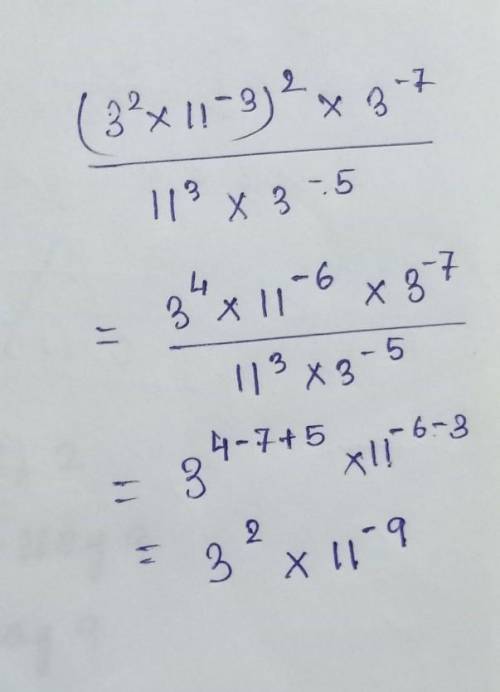 (3² × 11⁻³)² × 3⁻⁷
11³ × 3⁻⁵
= 3⁴ × 11⁻⁶ × 3⁻⁷
11³ × 3⁻⁵
= 3⁴⁻⁷⁺⁵ × 11⁻⁶⁻³
= 3² × 11⁻⁹